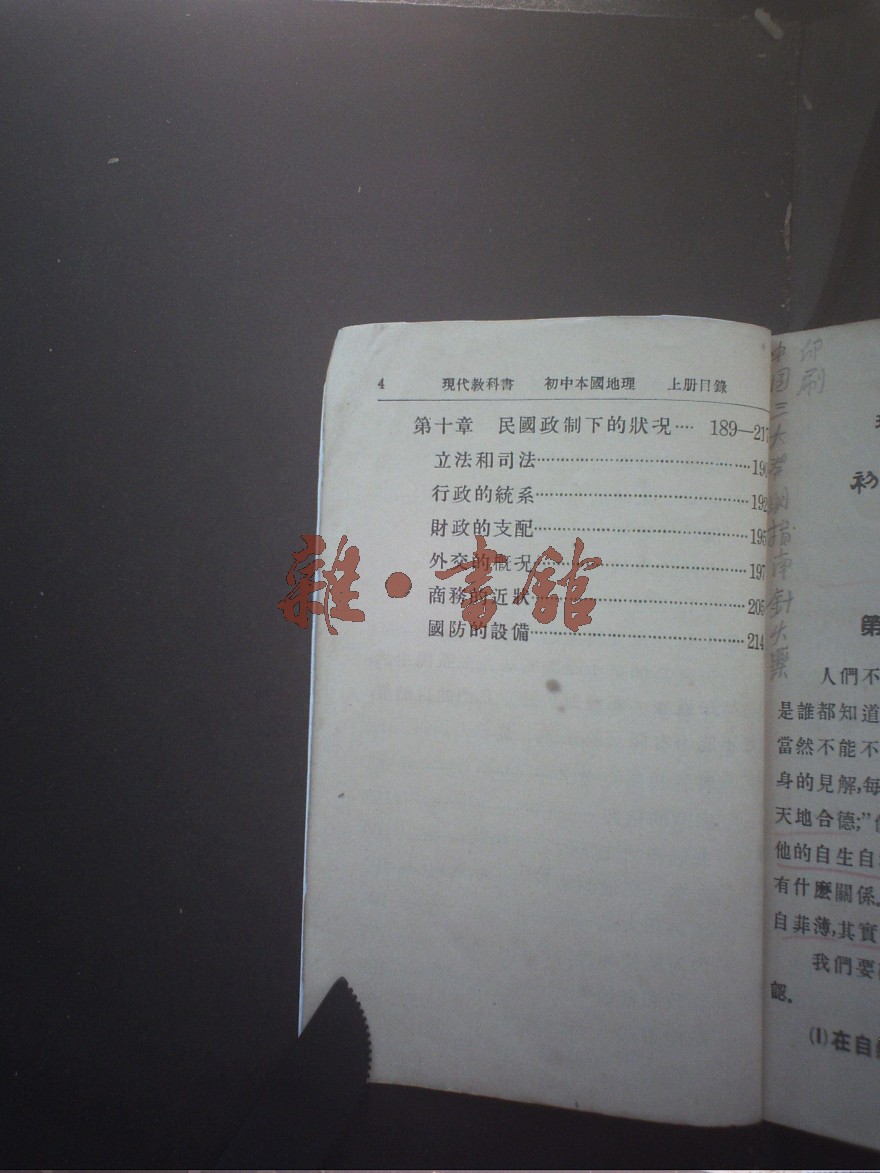 4 現代教科書 初中本國地理 上册目錄
第十章 民國政制下的狀況…… 189—217
立法和司法……190
行政的統系……192
財政的支配……195
外交的概況……197
商務的近狀……205
國防的設備……214
雜·書館
印刷
中国三大 指南針火藥
初
第
人們不
是誰都知道
當然不能不
身的見解,每
天地合德;”
他的自生自
有什麽關係.
自菲薄,其實
我們要
認.
(1)在自